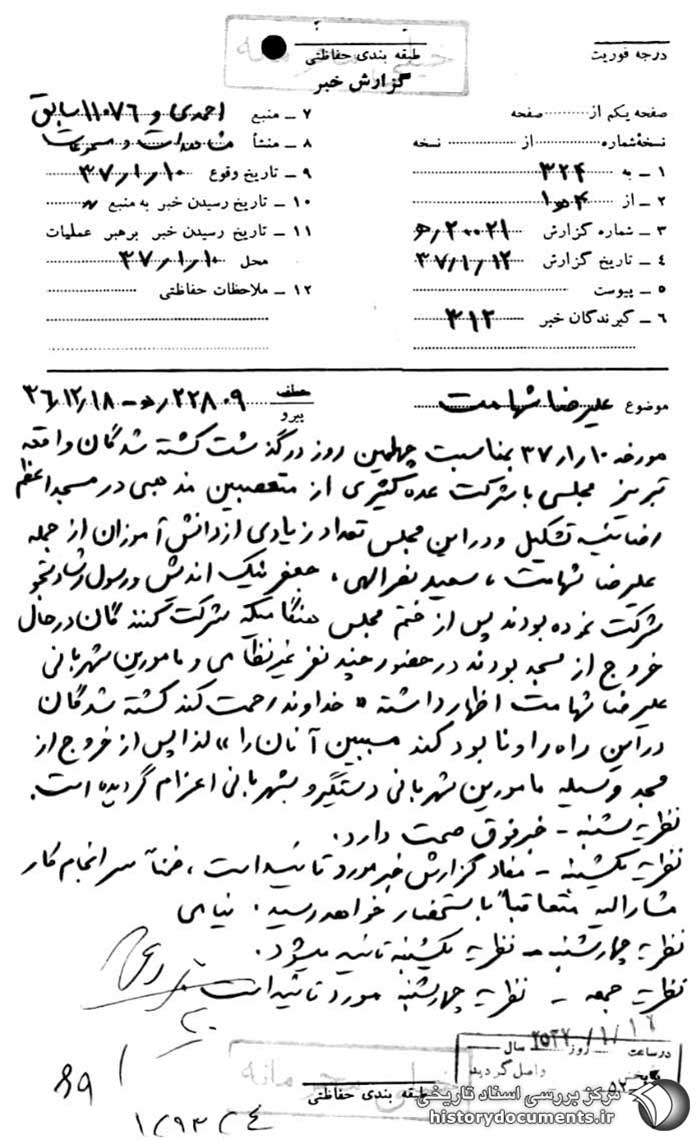 خیلی محرمانه
درجه فوریت
طبقه بندی حفاظتی
گزارش خبر
صفحه یکم از صفحه
نسخه شماره از نسخه
۱ ـ به ۳۲۴
۲ ـ از ۱۰۴
۳ ـ شماره گزارش ۲۰۰۲۱/ه
۴ ـ تاریخ گزارش ۳۷/۱/۱۲
۵ ـ پیوست
۶ ـ گیرندگان خبر ۳۱۲
۷ ـ منبع احمدی و ۱۱۰۷۶ سابق
۸ ـ منشأ مشاهدات و مسموعات
۹ ـ تاریخ وقوع ۳۷/۱/۱۰
۱۰ ـ تاریخ رسیدن خبر به منبع
۱۱ ـ تاریخ رسیدن خبر برهبر عملیات
محل ۳۷/۱/۱۰
۱۲ ـ ملاحظات حفاظتی
موضوع علیرضا شهامت
عطف
پیرو ۲۲۸۰۹/ه ـ ۳۶/۱۲/۱۸
مورخه ۳۷/۱/۱۰ بمناسبت چهلمین روز درگذشت کشته شدگان واقعه
تبریز مجلسی با شرکت عده کثیری از متعصبین مذهبی در مسجد اعظم
رضائیه تشکیل و در این مجلس تعداد زیادی از دانش آموزان از جمله
علیرضا شهامت ، سعید نفرالهی ، جعفر نیک اندیش و رسول رشادتجو
شرکت نموده بودند پس از ختم مجلس هنگامیکه شرکت کنندگان در حال
خروج از مسجد بودند در حضور چند نفر غیرنظامی و مامورین شهربانی
علیرضا شهامت اظهار داشته « خداوند رحمت کند کشته شدگان
در این راه را و نابود کند مسببین آنان را » لذا پس از خروج از
مسجد وسیله مامورین شهربانی دستگیر و بشهربانی اعزام گردیده است.
نظریه شنبه ـ خبر فوق صحت دارد.
نظریه یکشنبه ـ مفاد گزارش خبر مورد تائید است ، ضمناً سرانجام کار
مشارالیه متعاقباً باستحضار خواهد رسید. نیامی
نظریه چهارشنبه ـ نظریه یکشنبه تائید میشود.
نظریه جمعه ـ نظریه چهارشنبه مورد تائید است
۲۵۳۷/۱/۱۶
در ساعت روز سال
واصل گردید
خیلی محرمانه
طبقه بندی حفاظتی
۸۹
۱/۹۳/۴
مرکز بررسی اسناد تاریخی
historydocuments.ir